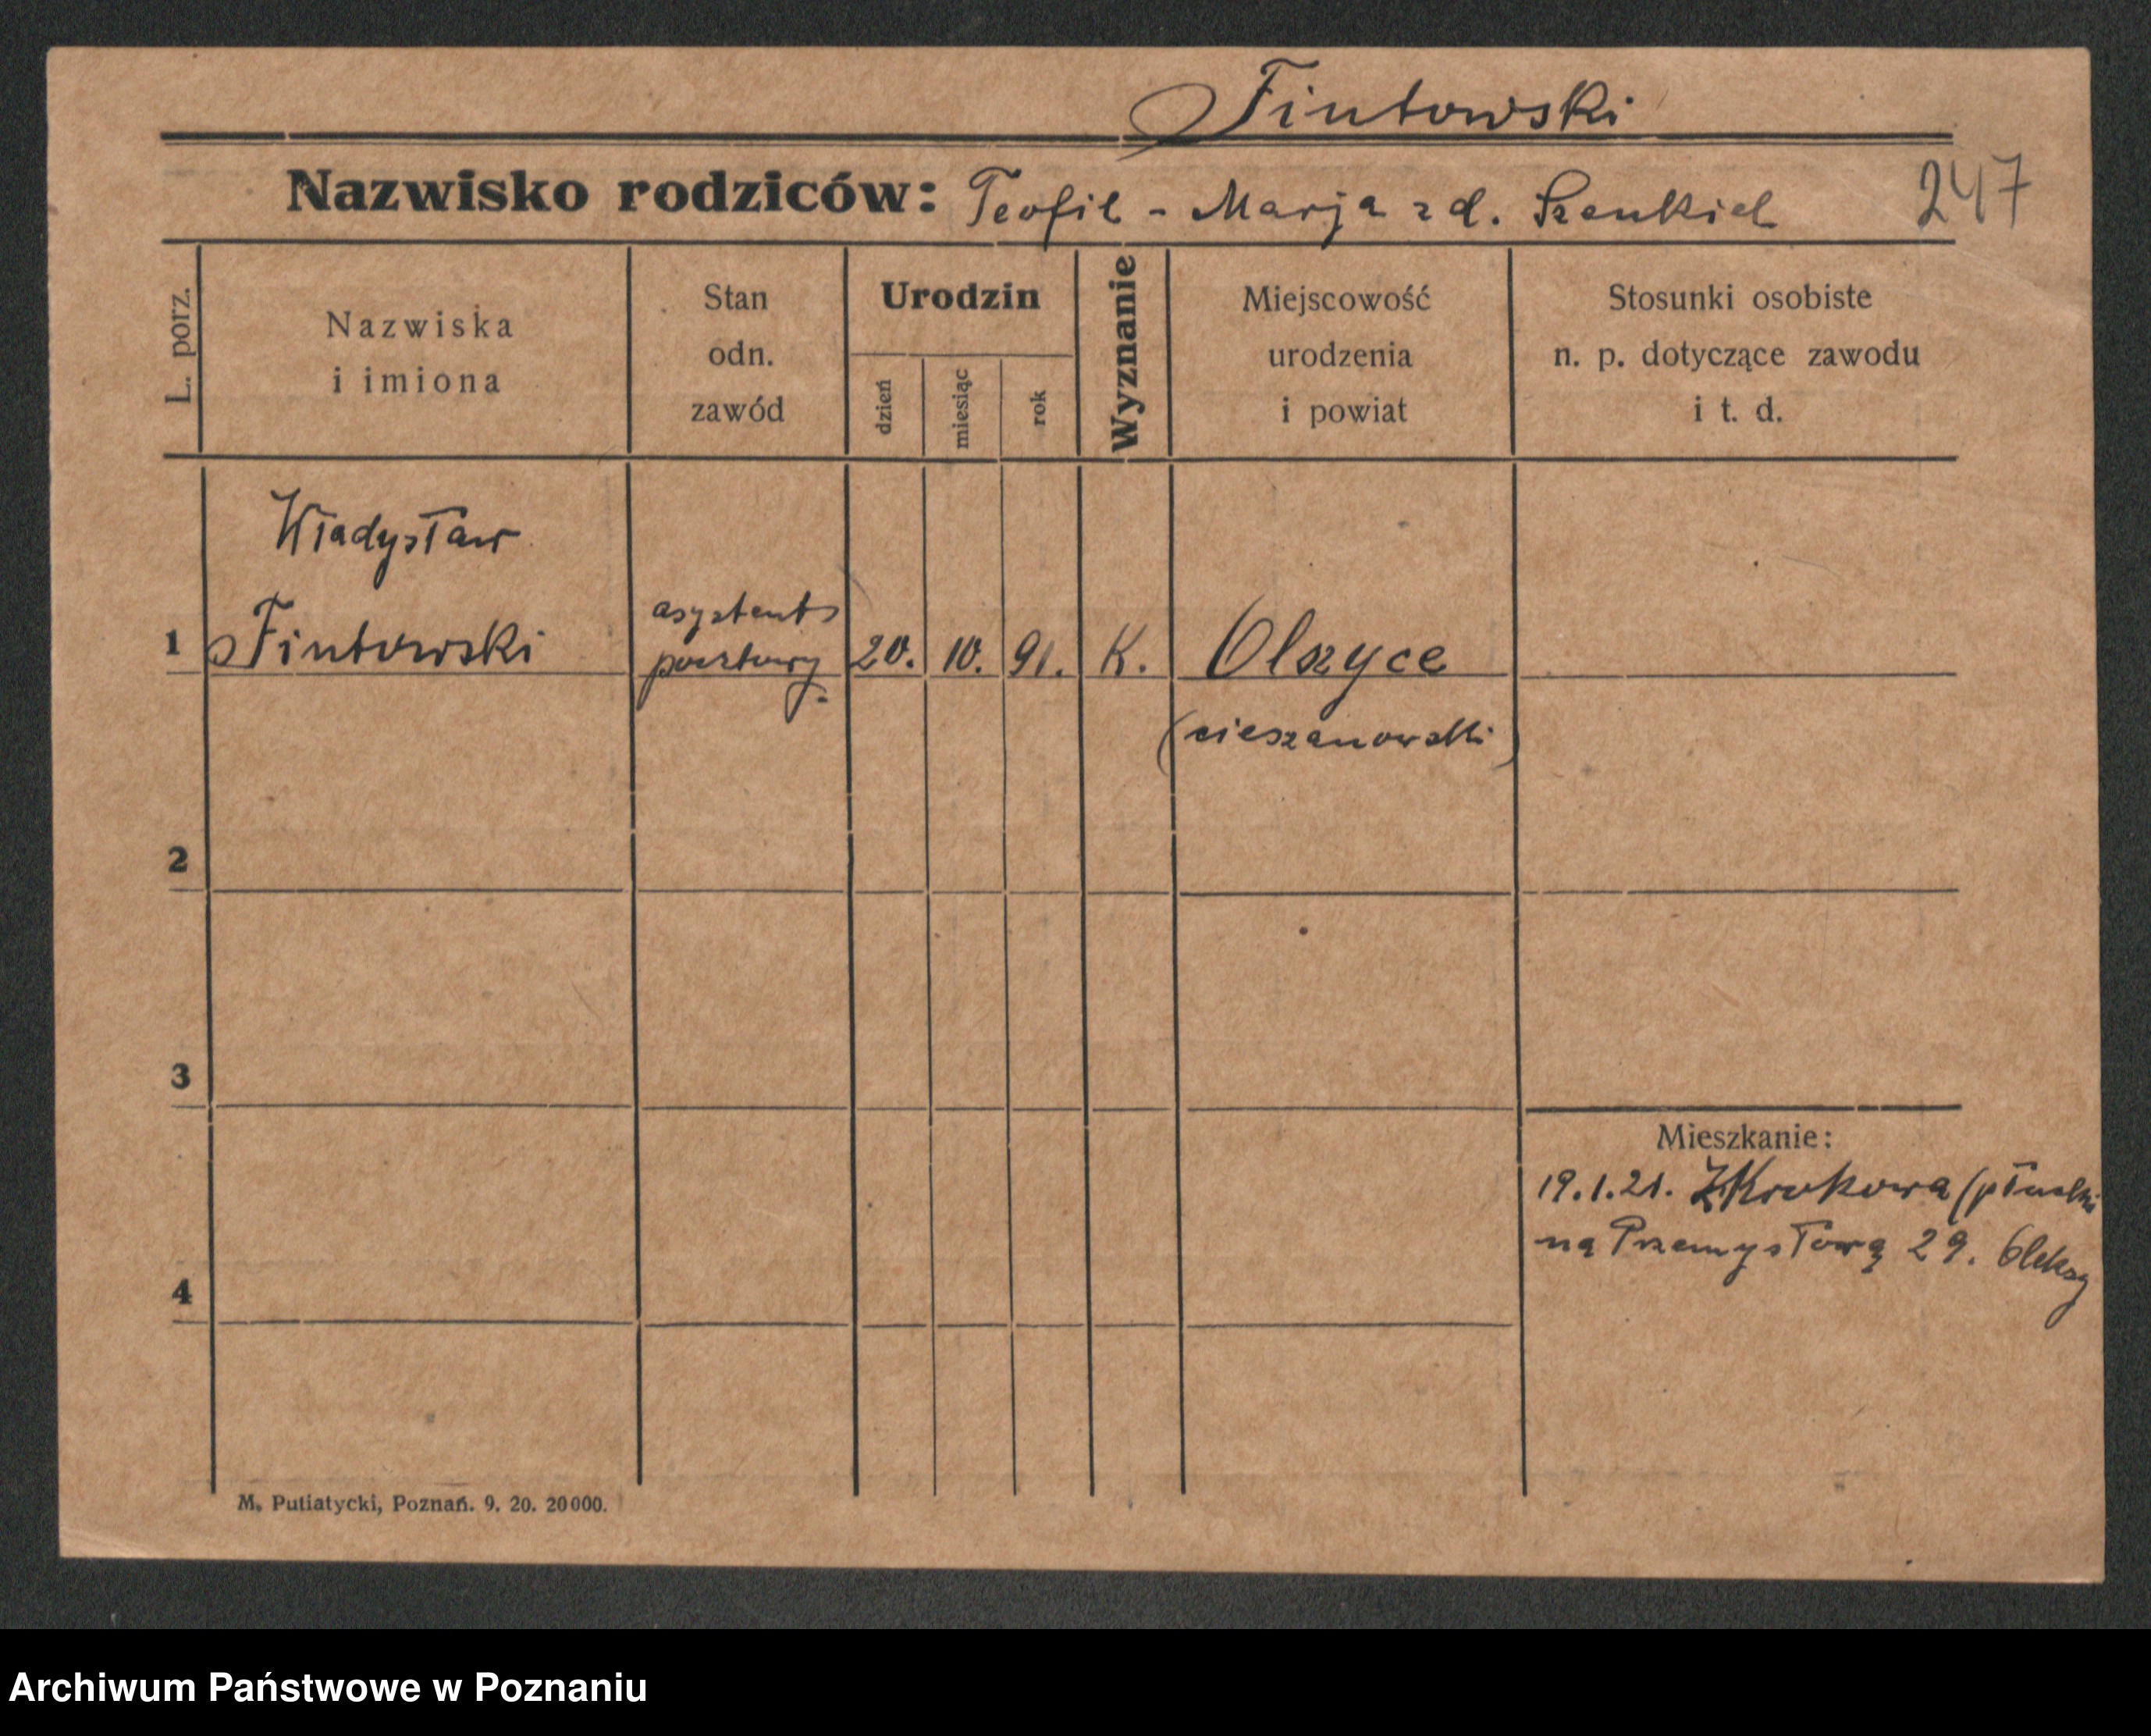 Fintowski
Nazwisko rodziców: Teofil - Marja zd. Szenkiel 247
L. porz.
Nazwiska
i imiona
Stan
odn.
zawód
Urodzin
dzień
miesiąc
rok
Wyznanie
Miejscowość
urodzenia
i powiat
Stosunki osobiste
n. p. dotyczące zawodu
i t. d.
Władysław
1 Fintowski
asystent
pocztowy
20. 10. 91. K. Olszyce
(cieszanowski)
2
3
4
Mieszkanie:
19.1.21. Z Krokowa (
na Przemysłową 29. Oleksy
M. Putiatycki, Poznań. 9. 20. 20000.
Archiwum Państwowe w Poznaniu